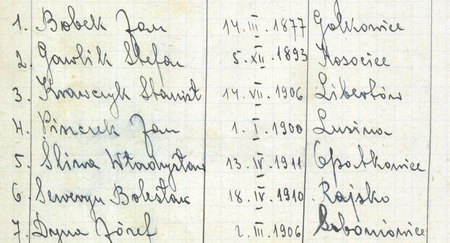 1. Bobek Jan 14.III.1877 Golkowice
2. Gawlik Stefan 5.XII.1893 Kosocice
3. Krawczyk Stanisł 14.VII.1906 Libertów
4. Piszczek Jan 1.I.1900 Lusina
5. Śliwa Władysław 13.IV.1911 Opatkowice
6. Seweryn Bolesław 18.IV.1910 Rajsko
7. Dyna Józef 2.III.1906